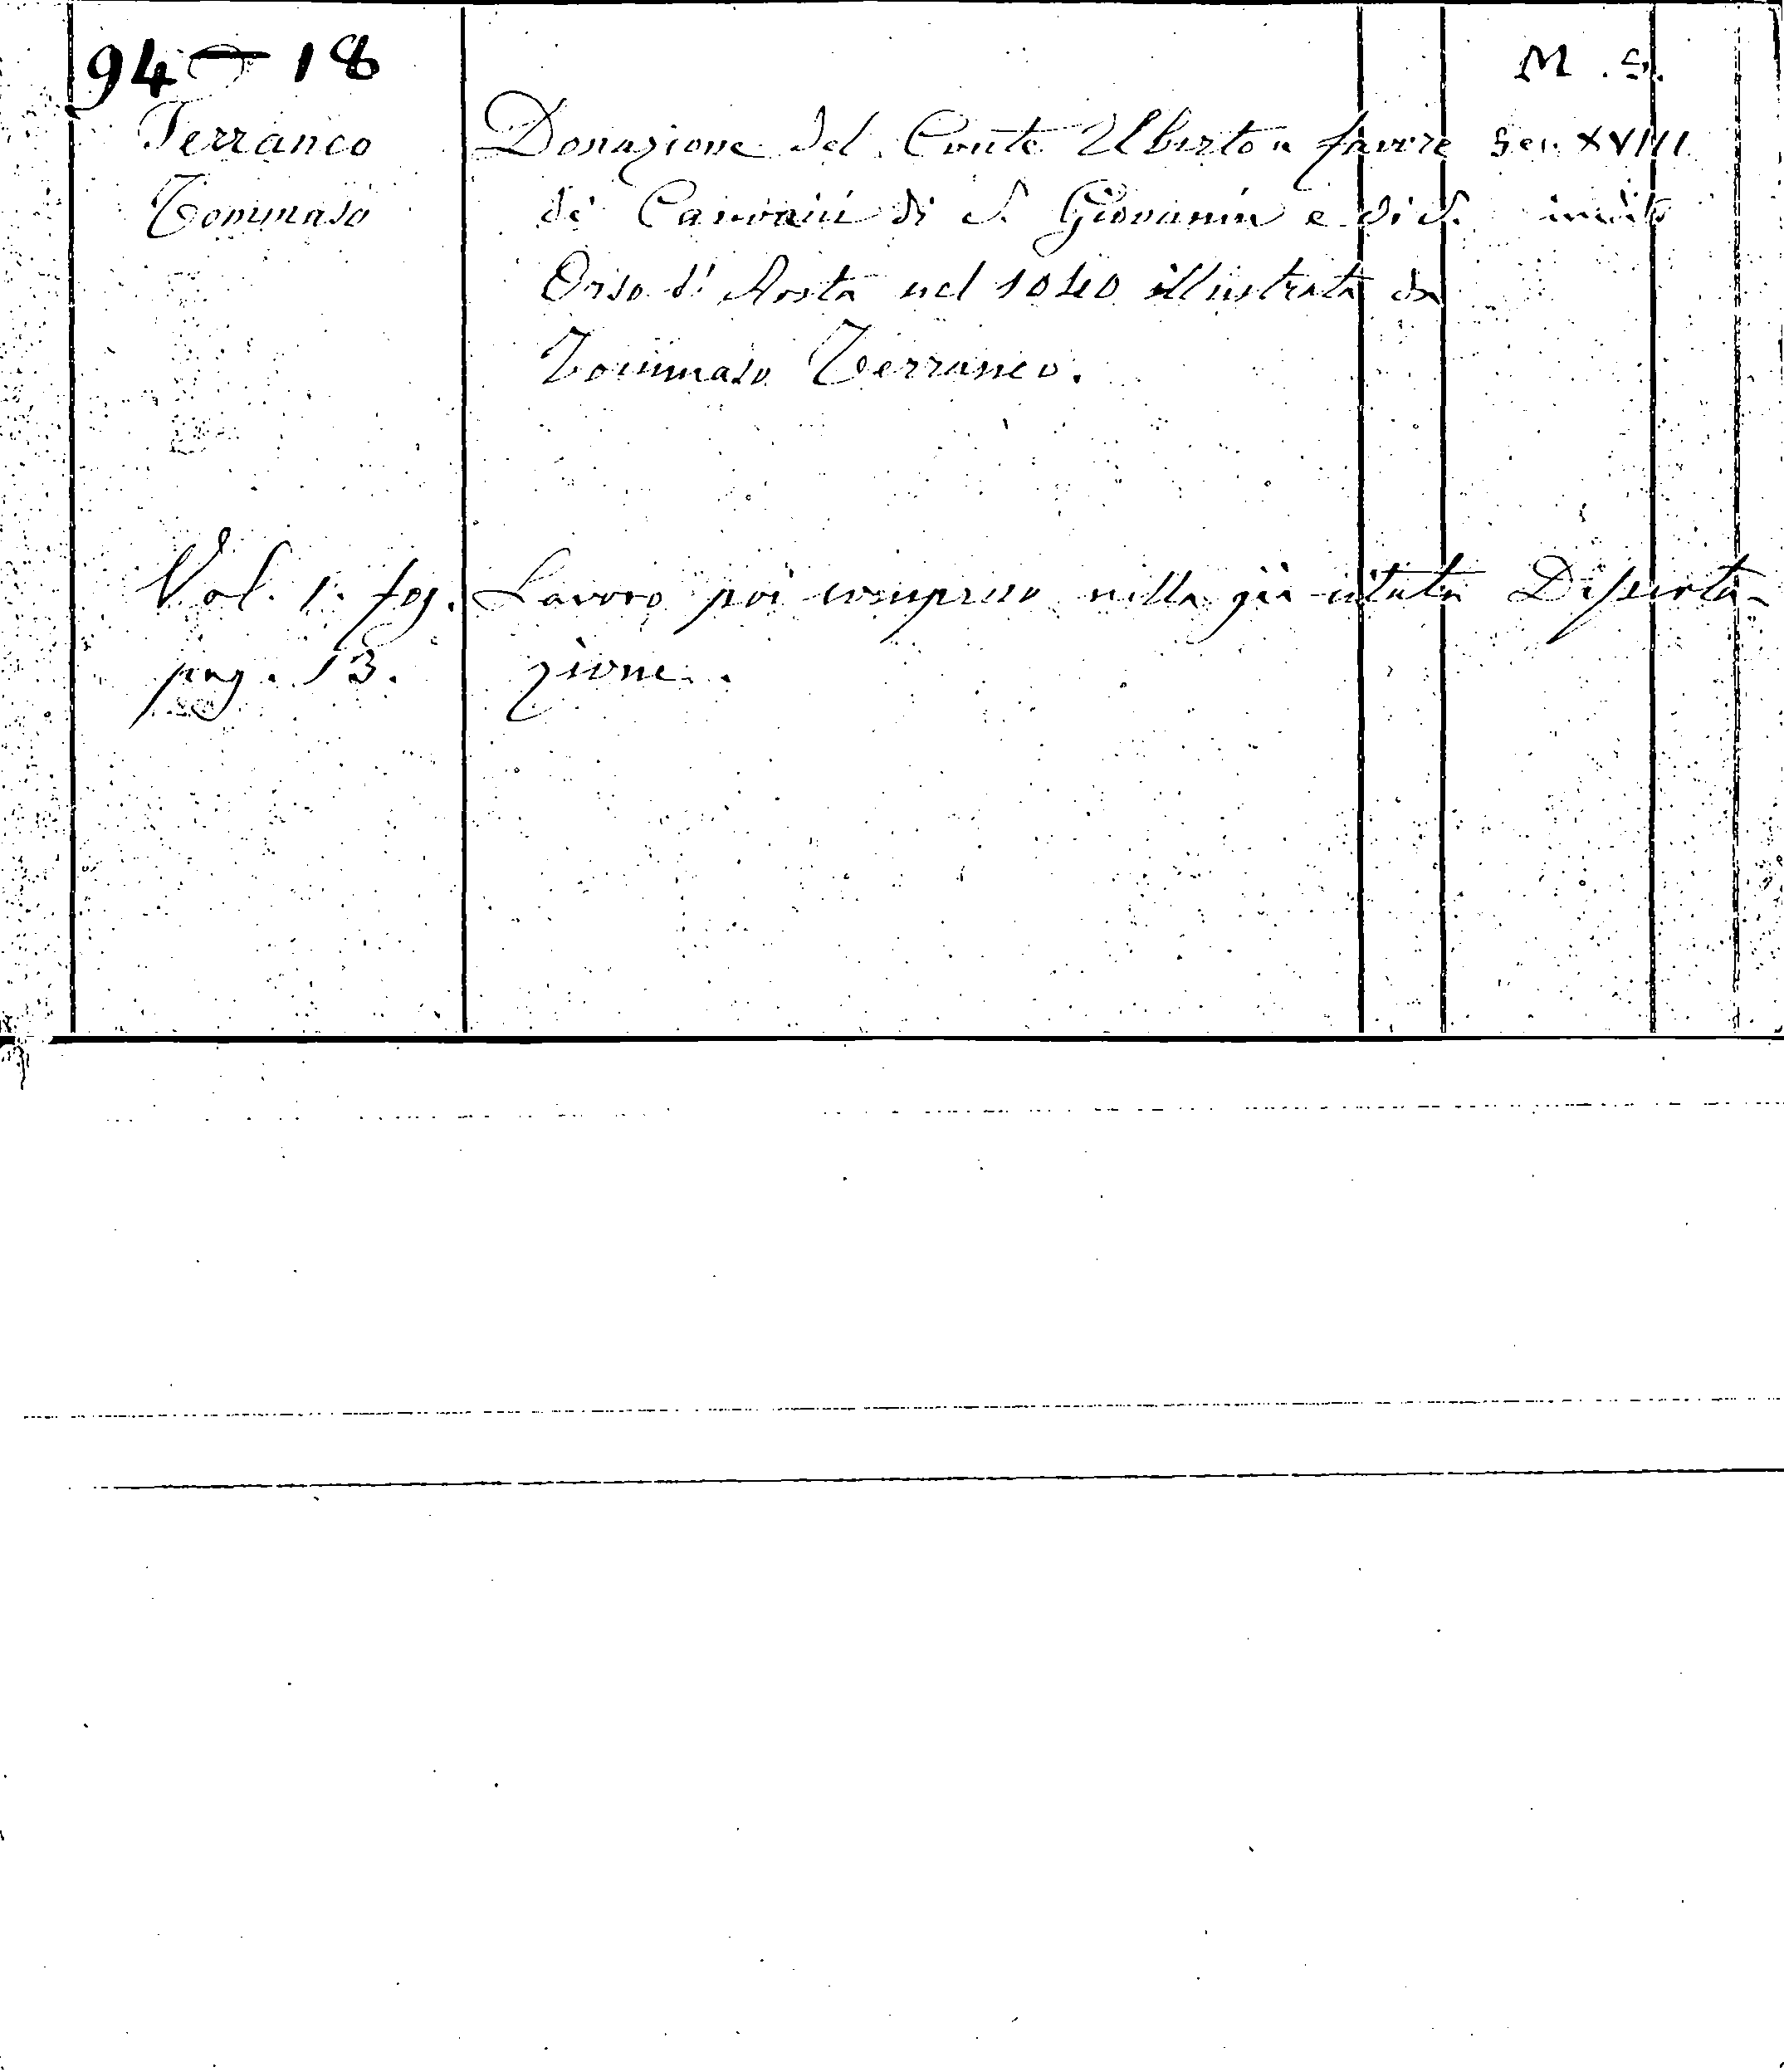 94 - 18
M. S.
Terraneo
Tommaso
Donazione del Conte Uberto a favore
de' Canonici di S. Giovanni e di S.
Orso d' Aosta nel 1040 illustrata da
Tommaso Terraneo.
Sec. XVIII
inedito
Vol. 1. fog.
pag. 13.
Lavoro poi compreso nella già citata Disserta-
zione.